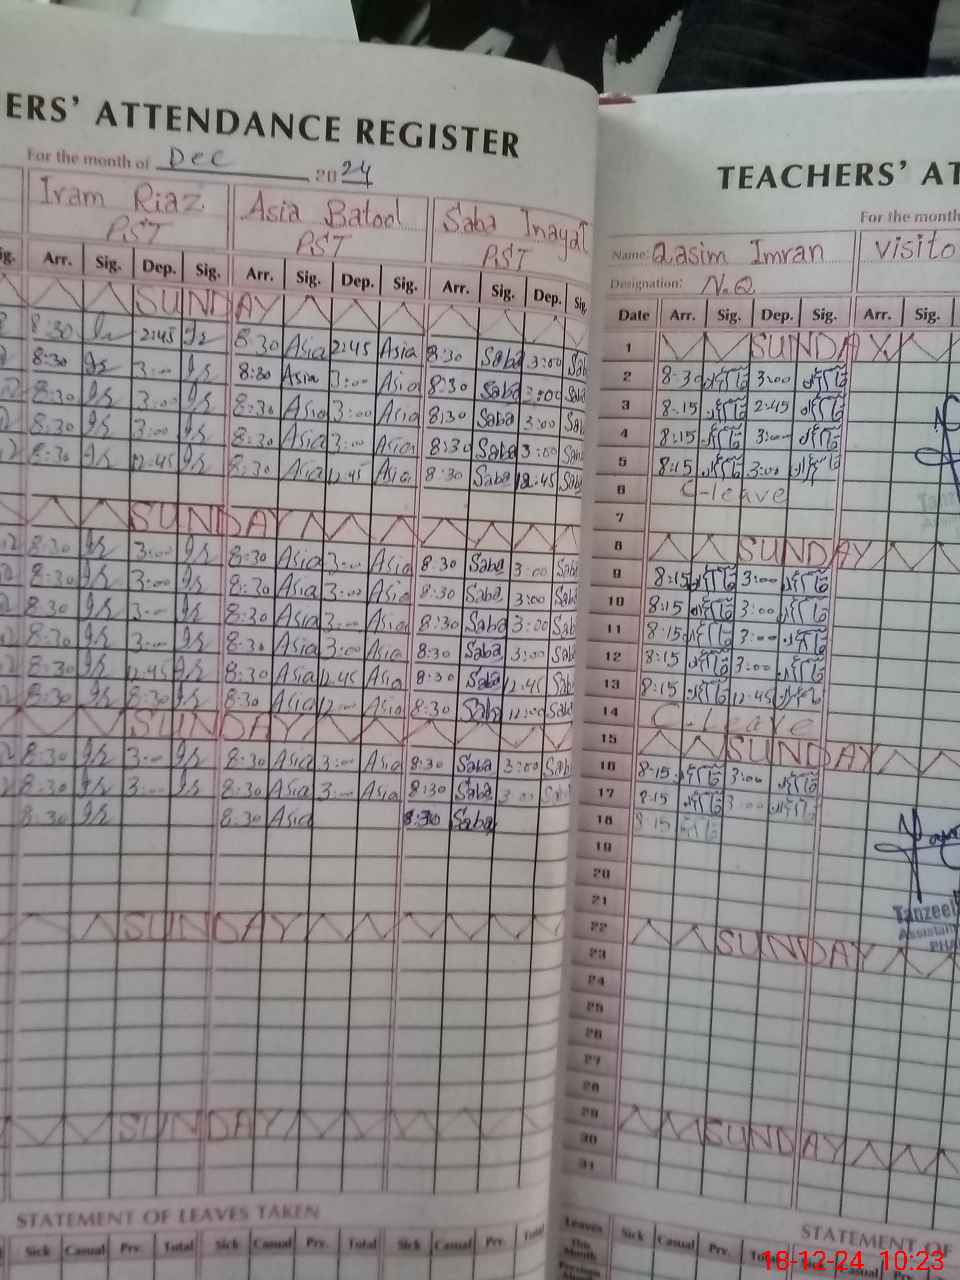 ERS' ATTENDANCE REGISTER
For the month of Dec 2024
Iram Riaz Asia Batool Saba Inayat
PST PST PST
Sig. Arr. Sig. Dep. Sig. Arr. Sig. Dep. Sig. Arr. Sig. Dep. Sig.
SUNDAY
8:30 2:45 8:30 Asia 2:45 Asia 8:30 Saba 3:00 Sab
8:30 3:00 8:30 Asia 3:00 Asia 8:30 Saba 3:00 Saba
8:30 3:00 8:30 Asia 3:00 Asia 8:30 Saba 3:00 Sa
8:30 3:00 8:30 Asia 3:00 Asia 8:30 Saba 3:00 Sab
8:30 12:45 8:30 Asia 12:45 Asia 8:30 Saba 12:45 Sab
SUNDAY
8:30 3:00 8:30 Asia 3:00 Asia 8:30 Saba 3:00 Sab
8:30 3:00 8:30 Asia 3:00 Asia 8:30 Saba 3:00 Sab
8:30 3:00 8:30 Asia 3:00 Asia 8:30 Saba 3:00 Sab
8:30 3:00 8:30 Asia 3:00 Asia 8:30 Saba 3:00 Sab
8:30 12:45 8:30 Asia 12:45 Asia 8:30 Saba 12:45 Sab
8:30 8:30 8:30 Asia 12:00 Asia 8:30 Saba 12:00 Sab
SUNDAY
8:30 3:00 8:30 Asia 3:00 Asia 8:30 Saba 3:00 Sab
8:30 3:00 8:30 Asia 3:00 Asia 8:30 Saba 3:00 Sab
8:30 8:30 Asia 8:30 Saba
SUNDAY
SUNDAY
STATEMENT OF LEAVES TAKEN
Sick Casual Prv. Total Sick Casual Prv. Total Sick Casual Prv. Total
TEACHERS' AT
For the month
Name: Qasim Imran Visito
Designation: N.Q
Date Arr. Sig. Dep. Sig. Arr. Sig.
1 SUNDAY
2 8:30 3:00
3 8:15 2:45
4 8:15 3:00
5 8:15 3:00
6 C-leave
7
8 SUNDAY
9 8:15 3:00
10 8:15 3:00
11 8:15 3:00
12 8:15 3:00
13 8:15 12:45
14 C-leave
15 SUNDAY
16 8:15 3:00
17 8:15 3:00
18 8:15
19
20
21
Tanzeel
22 SUNDAY
Assistan
23
24
25
26
27
28
29 SUNDAY
30
31
STATEMENT OF
Leaves Sick Casual Prv. Total
This Month
Previous
18-12-24 10:23